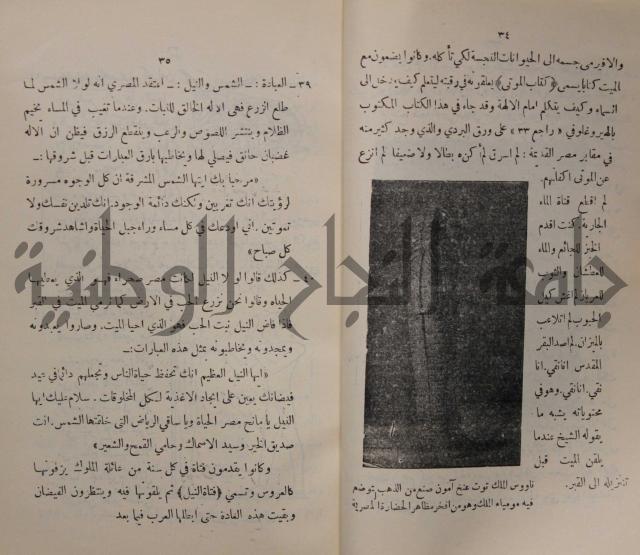 ٣٤
والا فيرمى جسمه الى الحيوانات النجسة لكي تأكله. وكانوا يضعون مع
الميت كتابا يسمى (كتاب الموتى) يعلقونه في رقبته ليتعلم كيف يدخل الى
السماء وكيف يتكلم امام الالهة وقد جاء في هذا الكتاب المكتوب
بالهيروغلوفي « راجع ٣٣ » على ورق البردي والذي وجد كثير منه
في مقابر مصر القديمة : لم اسرق لم أكن بطالا ولا ضعيفا لم انزع
عن الموتى اكفانهم.
لم اقطع قناة الماء
الجارية كنت اقدم
الخبز للجائع والماء
للعطشان والثوب
للعريان لم اغش كيل
الحبوب لم اتلاعب
بالميزان. لم اصد البقر
المقدس انا نقي. انا
نقي. انا نقي. وهو في
محتوياته يشبه ما
يقوله الشيخ عندما
يلقن الميت قبل
تنزيله الى القبر.
ناووس الملك توت عنخ آمون صنع من الذهب توضع
فيه مومياء الملك وهو من افخر مظاهر الحضارة المصرية
٣٥
٣٩ـ العبادة : ـ الشمس والنيل : ـ اعتقد المصري انه لولا الشمس لما
طلع الزرع فهي الاله الخالق للنبات. وعندما تغيب في المساء يخيم
الظلام وينتشر اللصوص والرعب وينقطع الرزق فيظن ان الاله
غضبان حانق فيصلي لها ويخاطبها بارق العبارات قبل شروقها :ـ
«مرحبا بك ايتها الشمس المشرقة ان كل الوجوه مسرورة
لرؤيتك انك تغربين ولكنك دائمة الوجود. انك تلدين نفسك ولا
تموتين. اني اودعك في كل مساء وراء جبل الحياة واشاهد شروقك
كل صباح»
٤٠ـ كذلك قالوا لولا النيل لكانت مصر صحراء فهو الذي يعطيها
الحياة وقالوا نحن نزرع الحب في الارض كما نرمي الميت في القبر
فاذا فاض النيل نبت الحب فهو الذي احيا الميت. وصاروا
ويمجدونه ويخاطبونه بمثل هذه العبارات :ـ
«ايها النيل العظيم انك تحفظ حياة الناس وتجعلهم دائما في عيد
فيضانك يعين على ايجاد الاغذية لكل المخلوقات. سلام عليك ايها
النيل يا مانح مصر الحياة ويا ساقي الرياض التي خلقتها الشمس. انت
صديق الخبز وسيد الاسماك وحامي القمح والشعير»
وكانوا يقدمون فتاة في كل سنة من عائلة الملوك يزفونها
كالعروس وتسمى (فتاة النيل) ثم يلقونها فيه وينتظرون الفيضان
وبقيت هذه العادة حتى ابطلها العرب فيما بعد
جامعة النجاح الوطنية